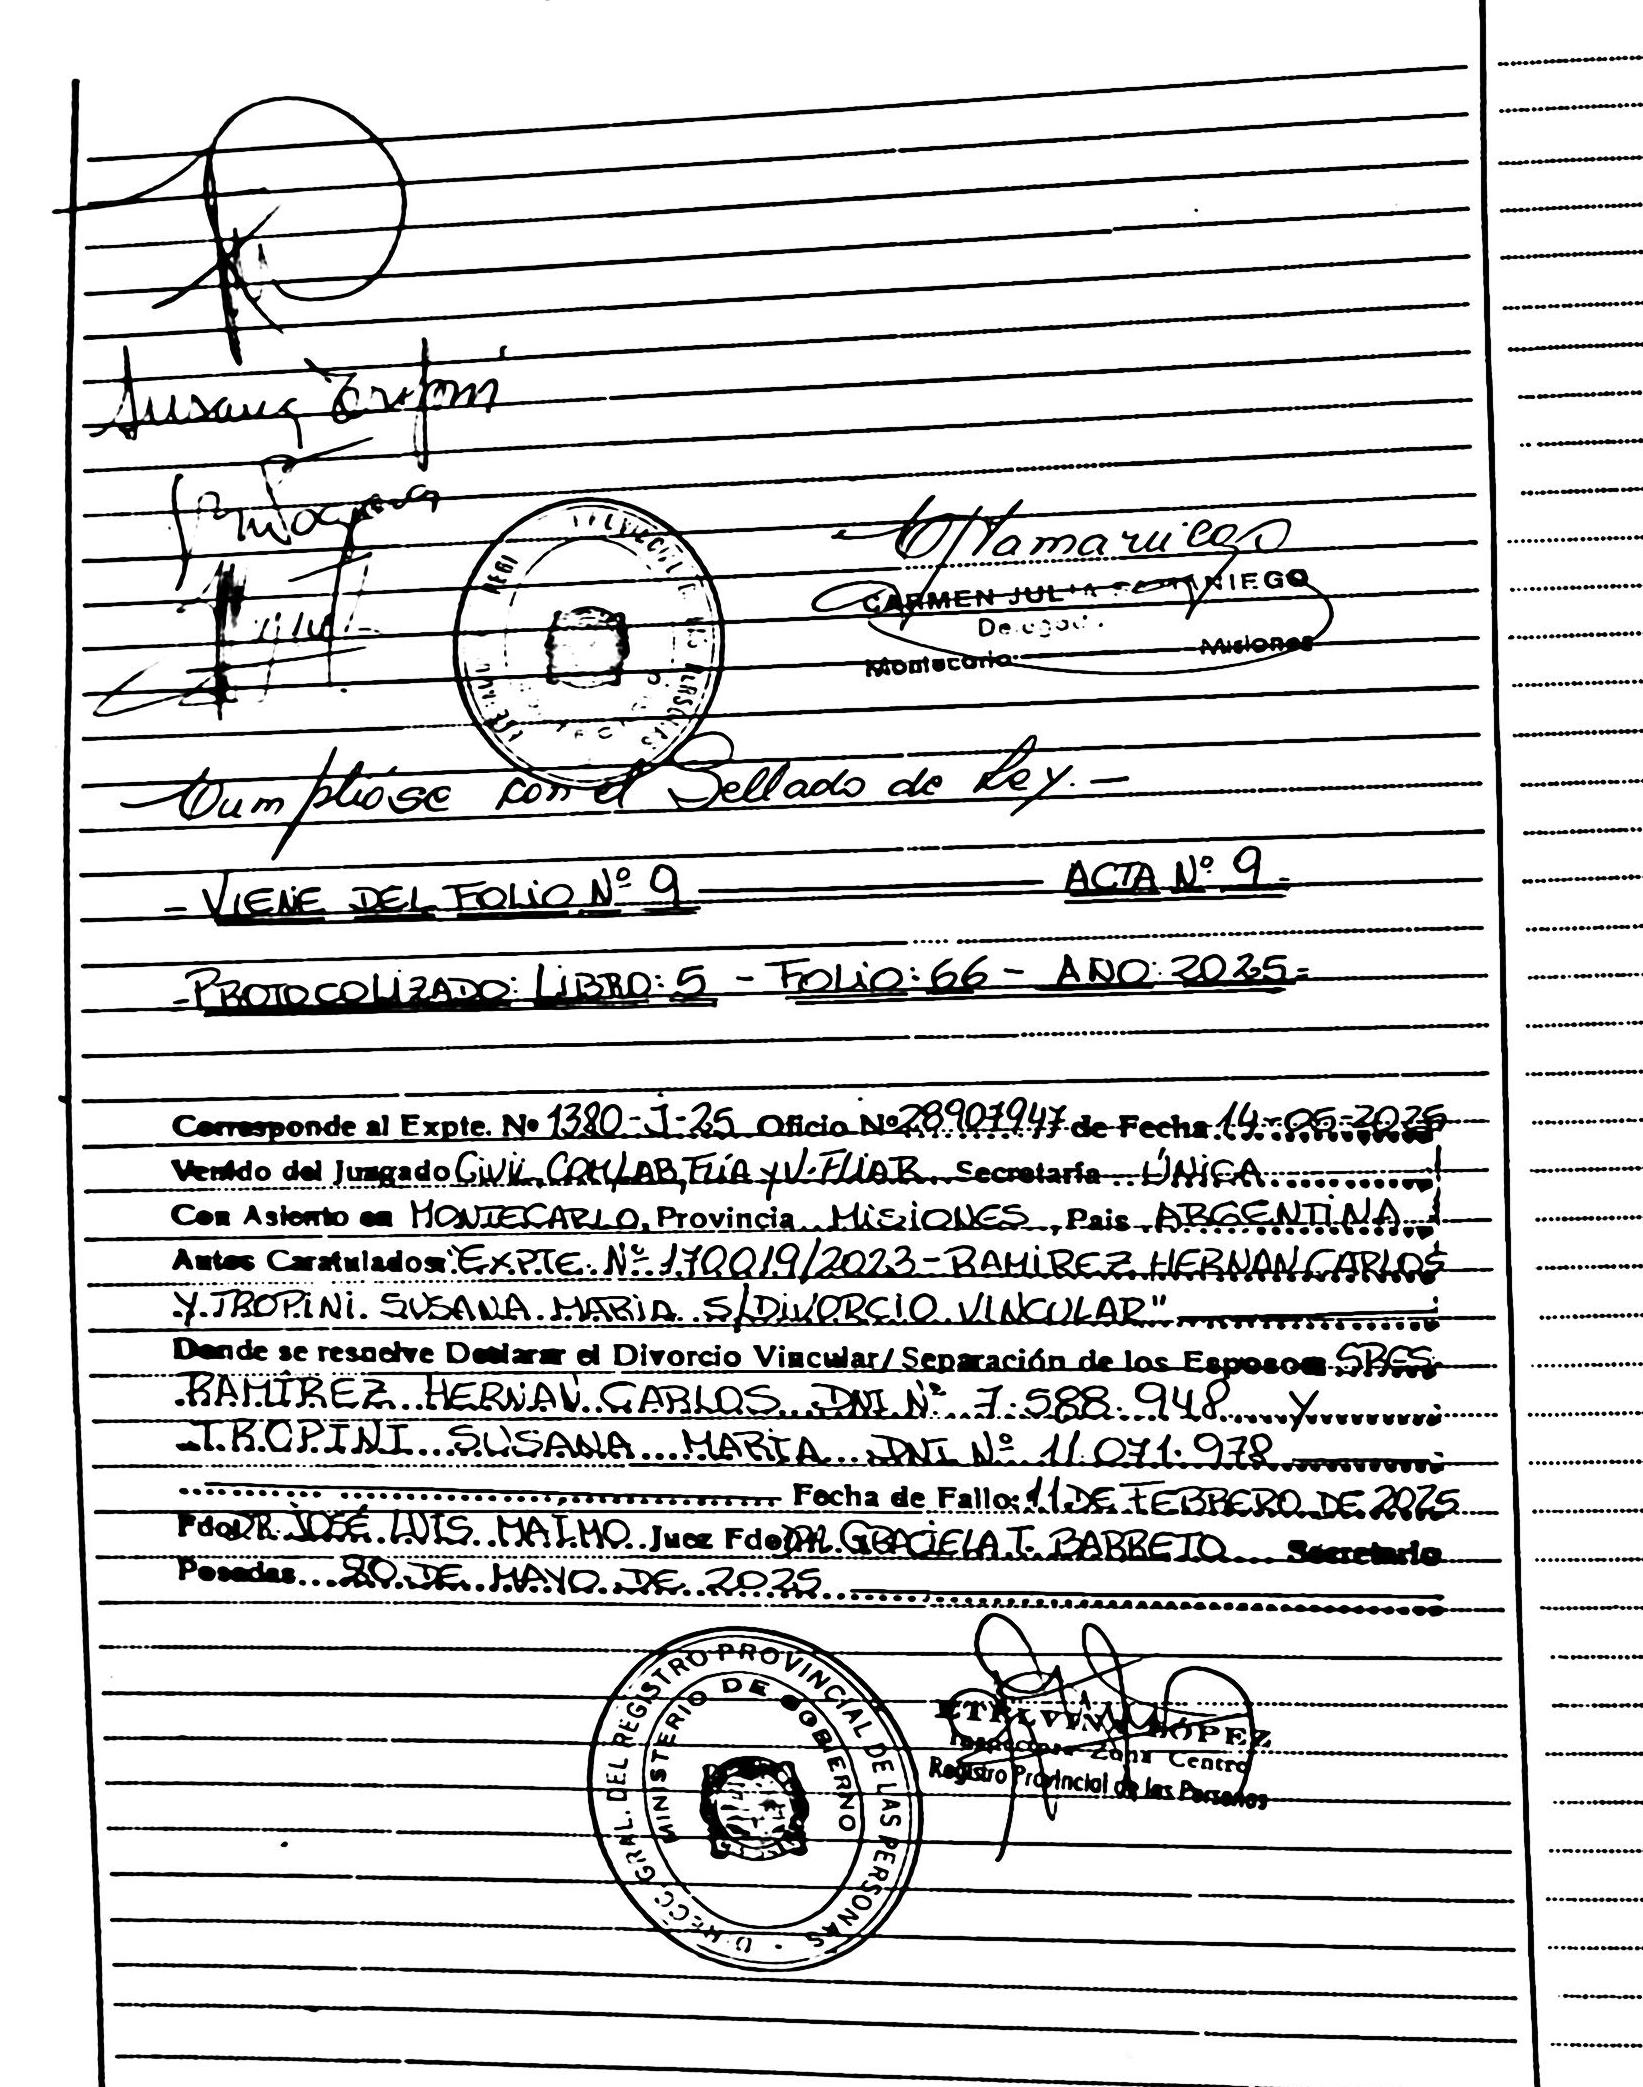 Susana Tropini
CARMEN JULIA SAMANIEGO
Delegada
Montecarlo Misiones
Cumplióse con el Sellado de Ley.-
- VIENE DEL FOLIO Nº 9 ACTA Nº 9.-
-PROTOCOLIZADO: LIBRO: 5 - FOLIO: 66 - AÑO: 2025=
Corresponde al Expte. Nº 1380-J-25 Oficio Nº 28907947 de Fecha 14-05-2025
Venido del Juzgado CIVIL, COM, LAB, FLIA y V. FLIAR Secretaría ÚNICA
Con Asiento en MONTECARLO, Provincia MISIONES, Pais ARGENTINA
Autos Caratulados: "EXPTE. Nº 170019/2023 - RAMIREZ HERNAN CARLOS
Y TROPINI SUSANA MARIA S/DIVORCIO VINCULAR"
Donde se resuelve Declarar el Divorcio Vincular/Separación de los Esposos SRES
RAMÍREZ HERNAN CARLOS DNI Nº 7.588.948 Y
TROPINI SUSANA MARIA DNI Nº 11.071.978
Fecha de Fallo: 11 DE FEBRERO DE 2025
Fdo DR. JOSÉ LUIS MAIMO Juez Fdo DRA. GRACIELA T. BARRETO Secretario
Posadas 20 DE MAYO DE 2025
DIRECC. GRAL. DEL REGISTRO PROVINCIAL DE LAS PERSONAS
MINISTERIO DE GOBIERNO
ETELVINA LÓPEZ
Inspectora Zona Centro
Registro Provincial de las Personas